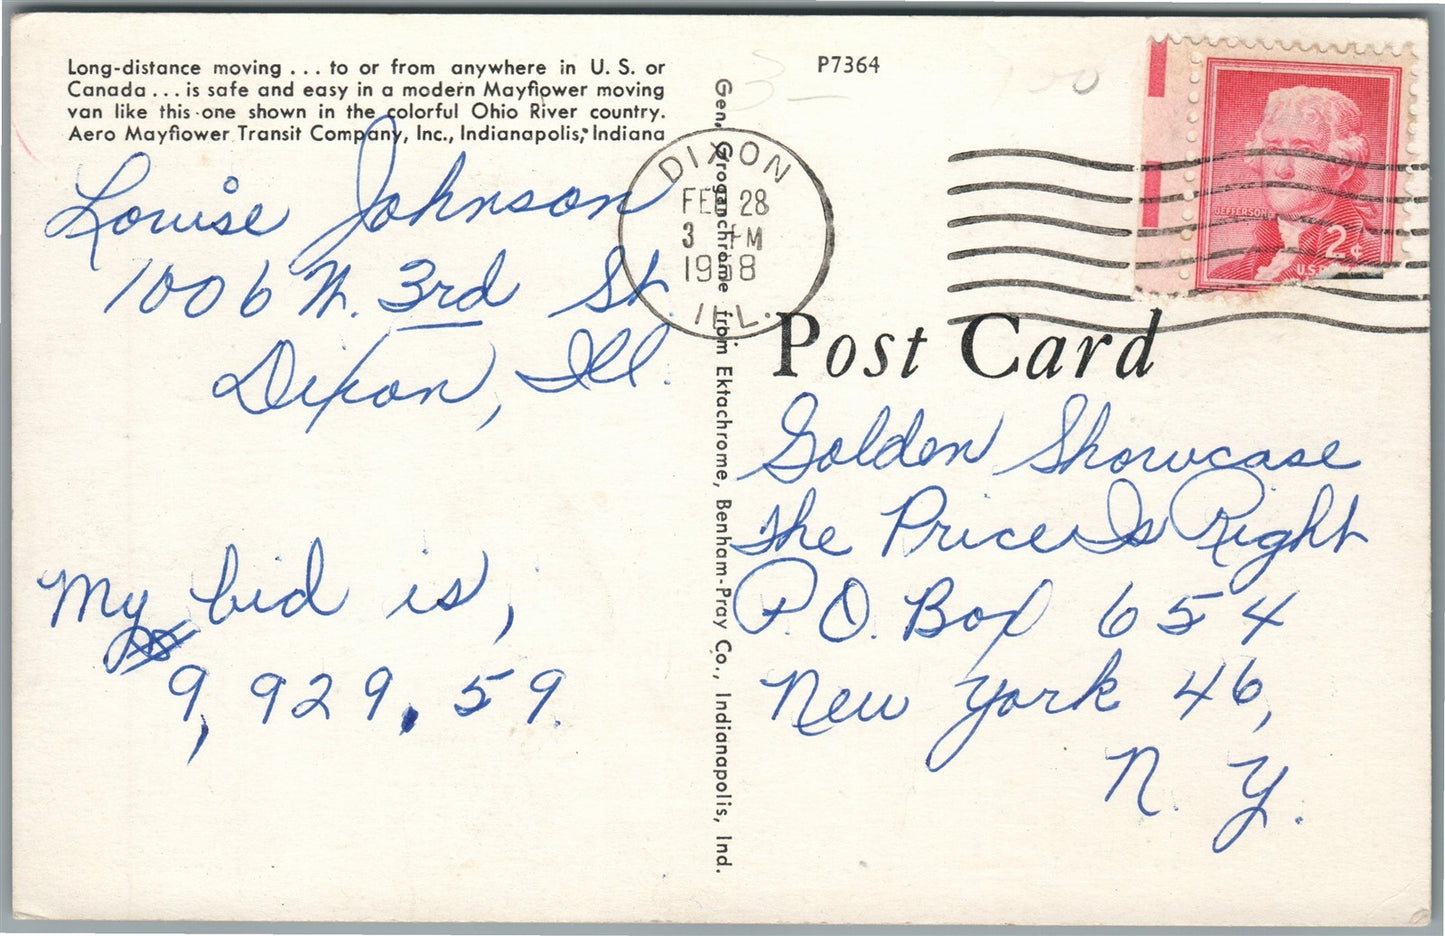 Long-distance moving ... to or from anywhere in U. S. or
Canada ... is safe and easy in a modern Mayflower moving
van like this one shown in the colorful Ohio River country.
Aero Mayflower Transit Company, Inc., Indianapolis, Indiana
Louise Johnson
1006 N. 3rd St.
Dixon, Ill.
My bid is,
9,929.59
Gen. Groganchrome from Ektachrome, Benham-Pray Co., Indianapolis, Ind.
P7364
DIXON
FEB 28
3 PM
1958
ILL.
JEFFERSON
2¢
Post Card
Golden Showcase
The Price Is Right
P.O. Box 654
New York 46,
N. Y.